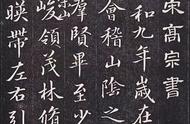 宋高宗書
和九年歲在
會稽山陰之
賢畢至少
崇山
峻領茂林脩
暎帶左右引